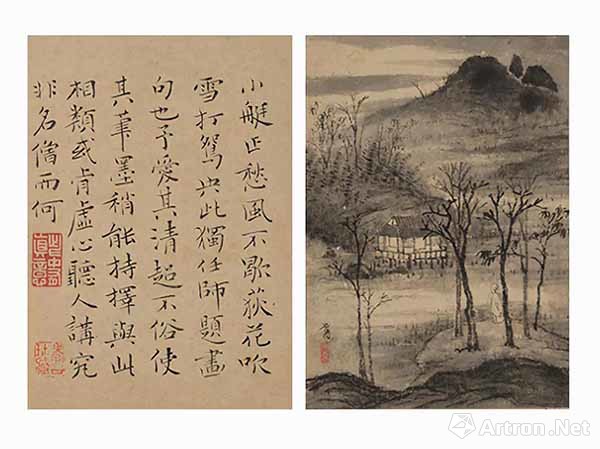 小艇正愁風不歇荻花吹
雪打鴛央此獨任師題畫
句也予愛其清超不俗使
其筆墨稍能持擇與此
相類或肯虛心聽人講究
非名僧而何
Artron.Net